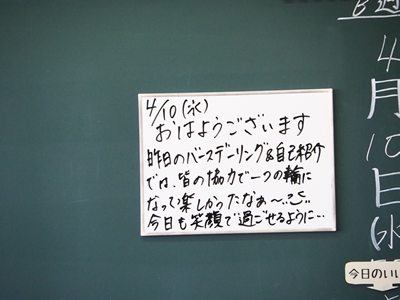 4/10(水)
おはようございます
昨日のバースデーリング&自己紹介
では、皆の協力で一つの輪に
なって楽しかったなぁ〜‥
今日も笑顔で過ごせるように…
4月10日(水
今日のいい